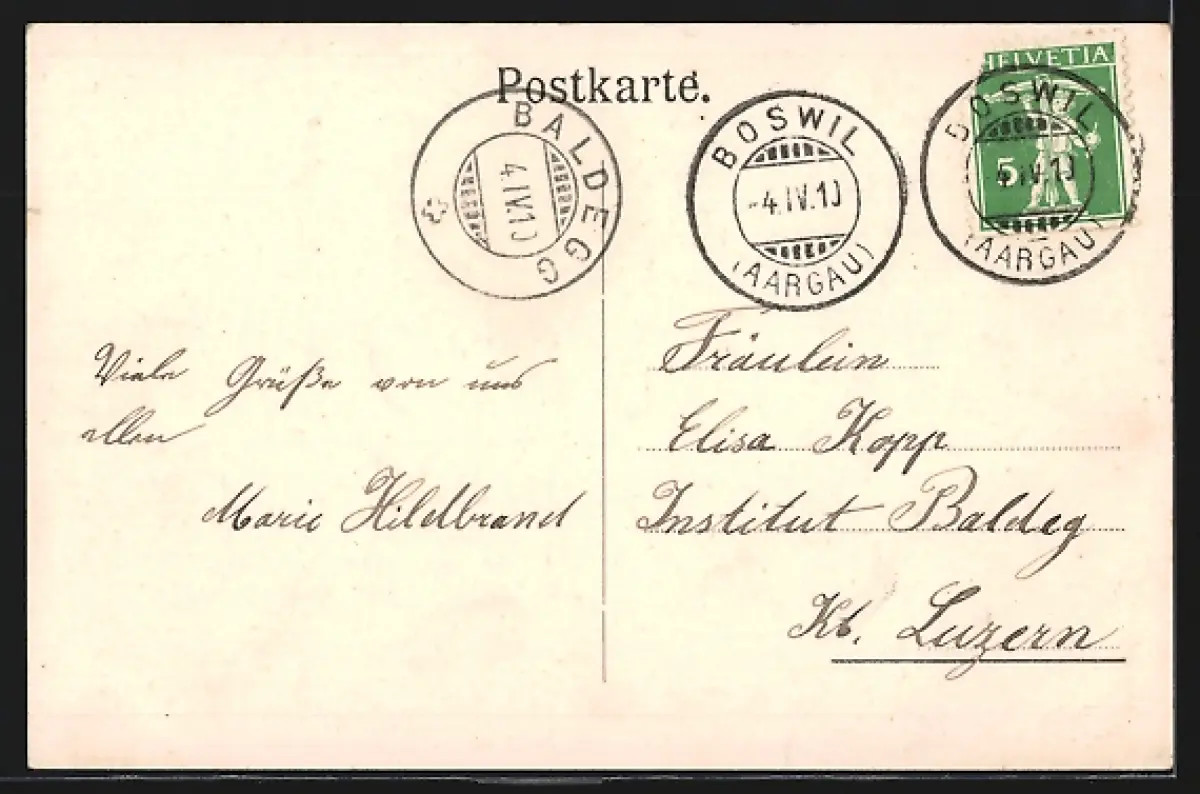 Postkarte.
HELVETIA
5
BOSWIL
4.IV.10
(AARGAU)
BOSWIL
-4.IV.10
(AARGAU)
BALDEGG
4.IV.10
Viele Grüße von uns
allen
Marie Hildbrand
Fräulein
Elisa Kopp
Institut Baldeg
Kt. Luzern